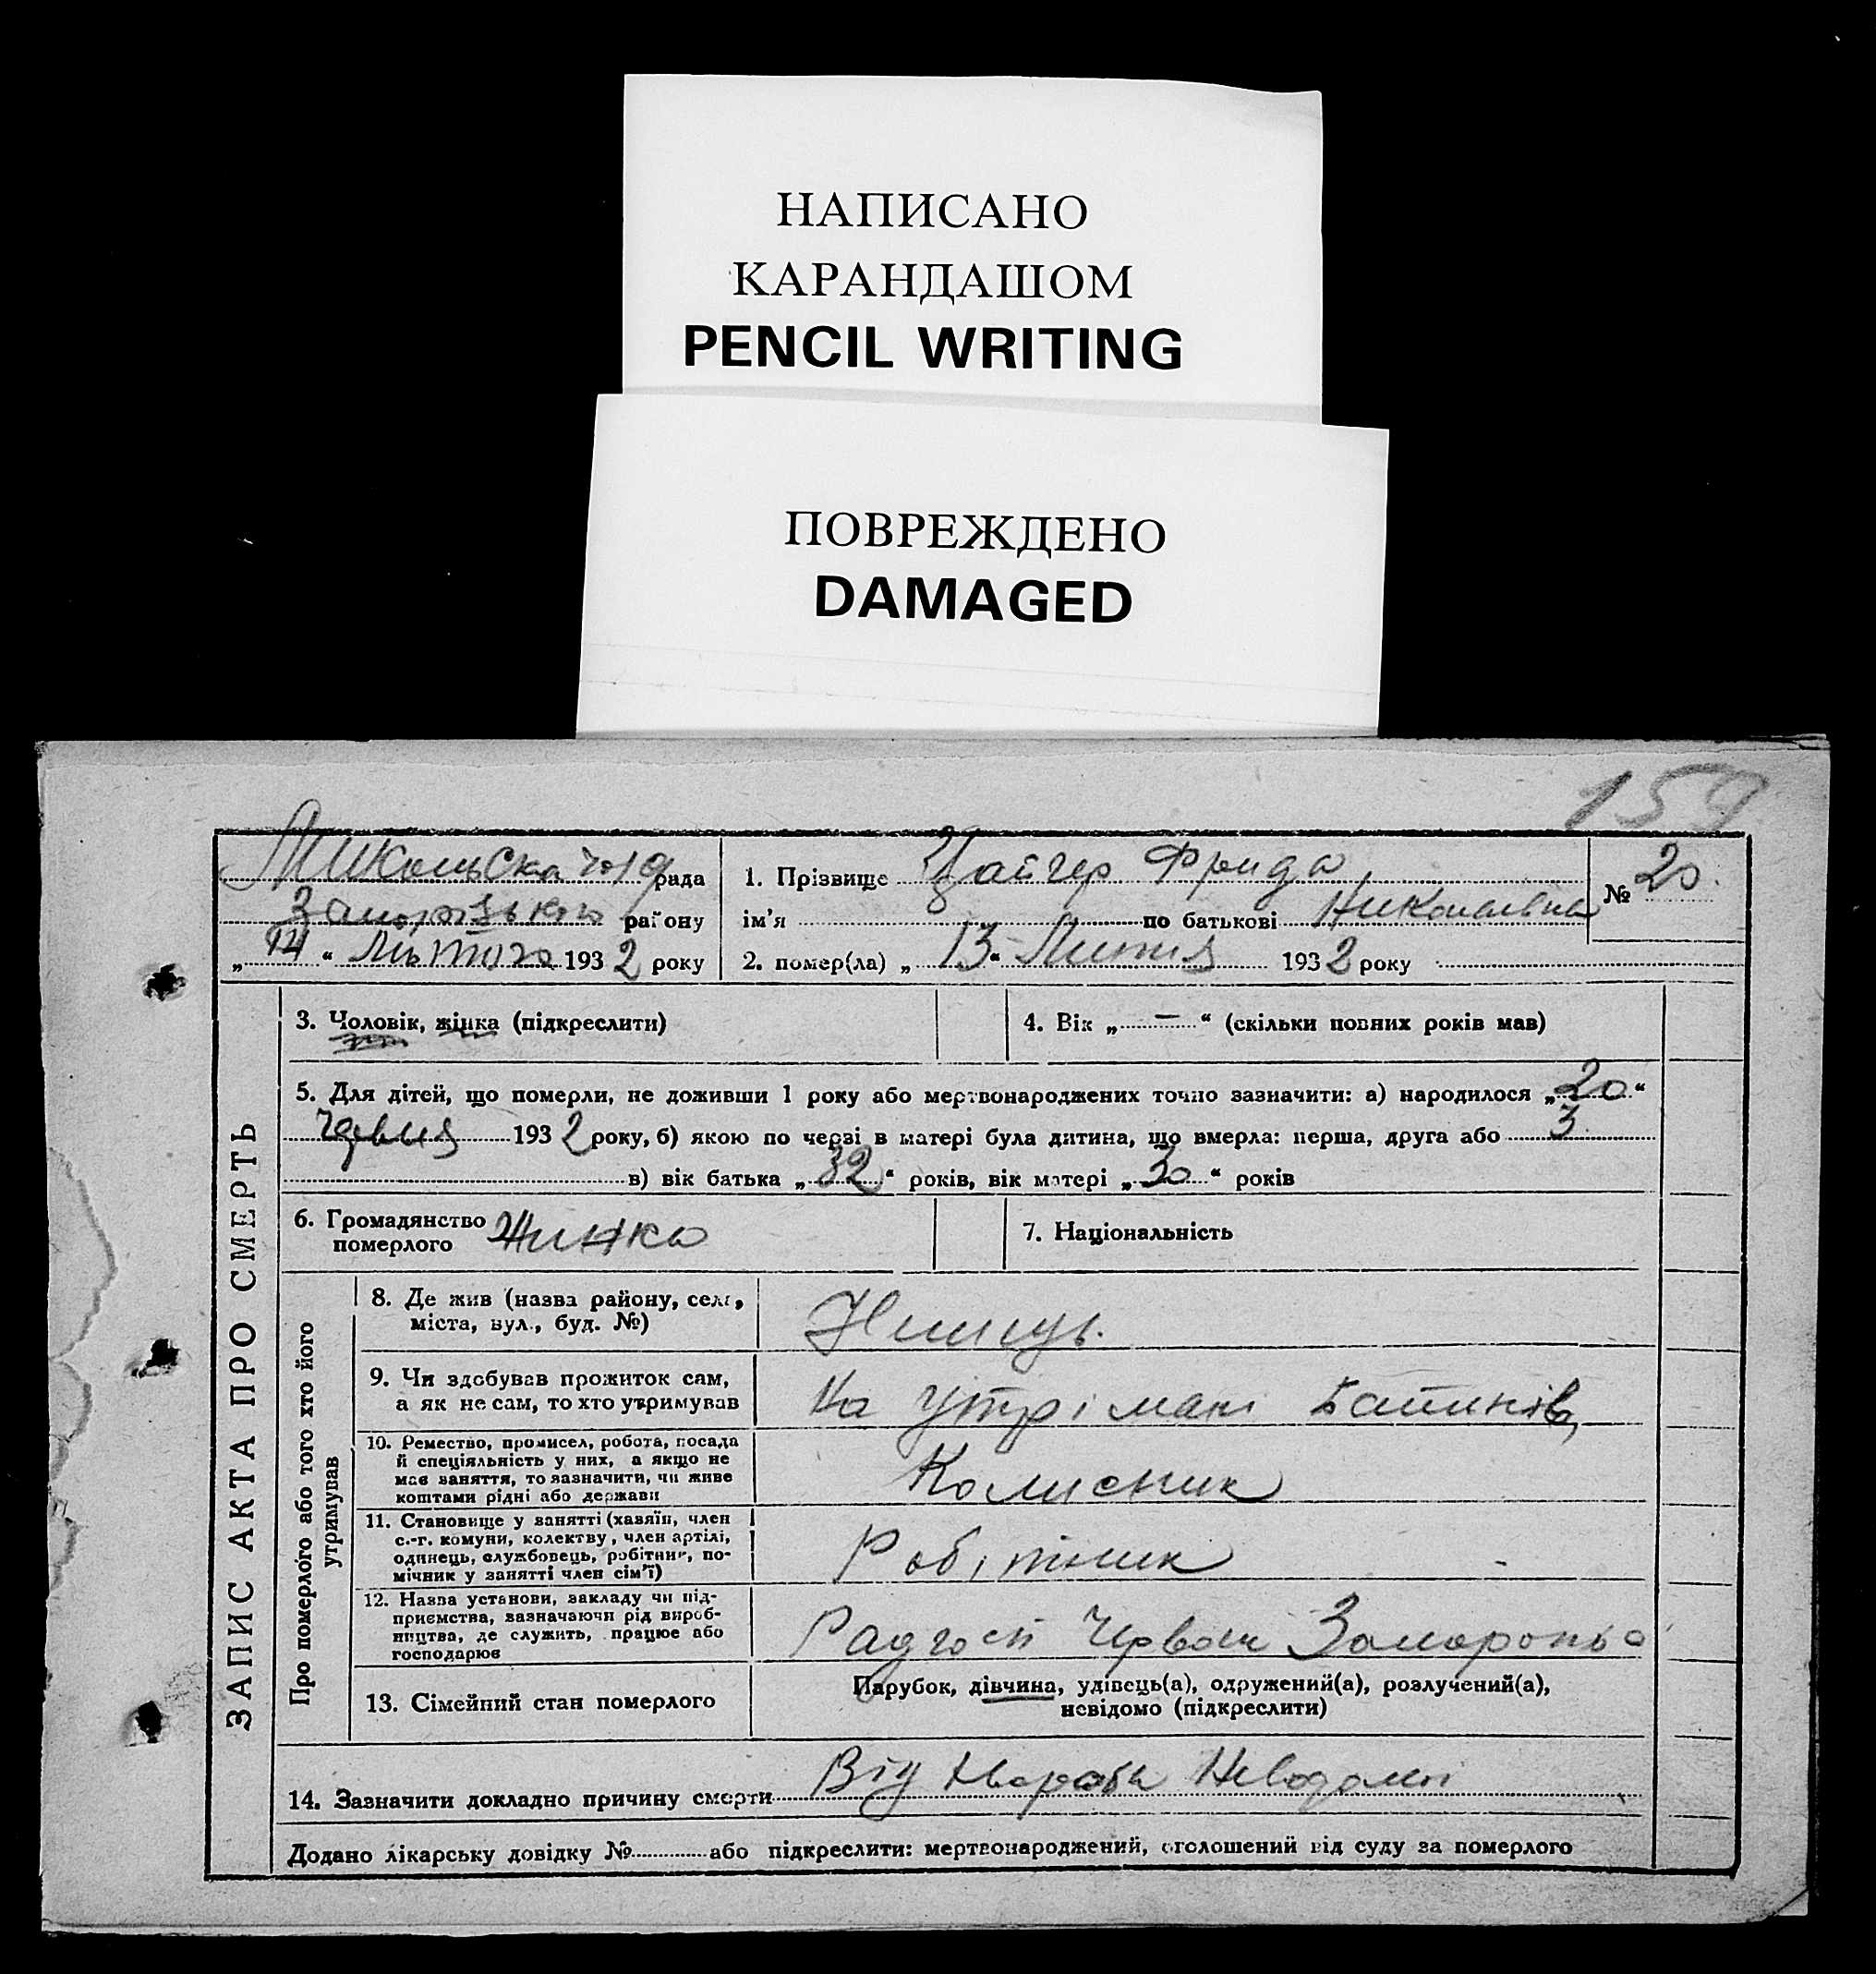 НАПИСАНО
КАРАНДАШОМ
PENCIL WRITING
ПОВРЕЖДЕНО
DAMAGED
159
рада
1. Прізвище Цайгер Фрида
№ 20
району
ім'я по батькові Николаевна
„14“ Лютого 1932 року
2. помер(ла) „13“ 1932 року
ЗАПИС АКТА ПРО СМЕРТЬ
3. Чоловік, жінка (підкреслити)
4. Вік „—“ (скільки повних років мав)
5. Для дітей, що померли, не доживши 1 року або мертвонароджених точно зазначити: а) народилося „20“
1932 року, б) якою по черзі в матері була дитина, що вмерла: перша, друга або 3
в) вік батька „32“ років, вік матері „30“ років
6. Громадянство
померлого Жинка
7. Національність
Про померлого або того хто його
утримував
8. Де жив (назва району, села,
міста, вул., буд. №)
9. Чи здобував прожиток сам,
а як не сам, то хто утримував
На утрімані Батьків
10. Ремество, промисел, робота, посада
й спеціяльність у них, а якщо не
мав заняття, то зазначити, чи живе
коштами рідні або держави
Колисник
11. Становище у занятті (хазяїн, член
с.-г. комуни, колектву, член артілі,
одинець, службовець, робітник, по-
мічник у занятті член сім'ї)
Робітник
12. Назва установи, закладу чи під-
приємства, зазначаючи рід вироб-
ництва, де служить, працює або
господарює
Радгосп
13. Сімейний стан померлого
Парубок, дівчина, удівець(а), одружений(а), розлучений(а),
невідомо (підкреслити)
14. Зазначити докладно причину смерти Від Неводомої
Додано лікарську довідку № або підкреслити: мертвонароджений, оголошений від суду за померлого